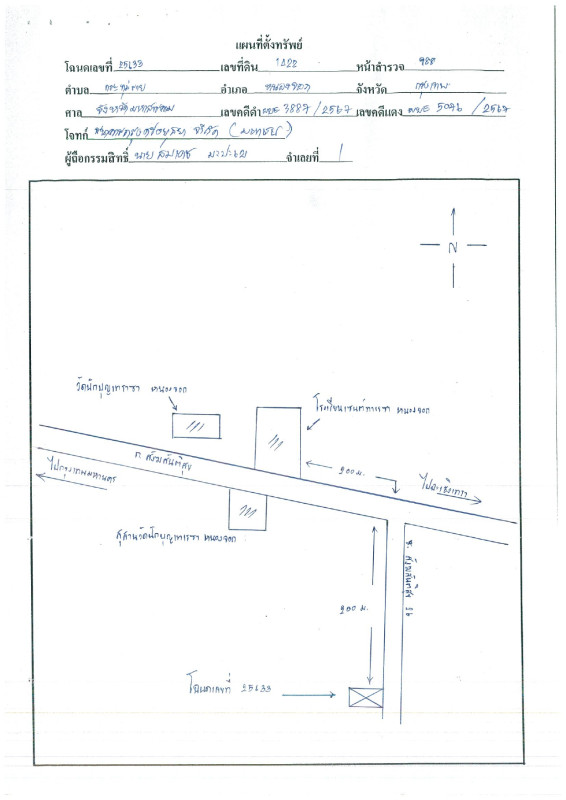 แผนที่ตั้งทรัพย์
โฉนดเลขที่ 25633 เลขที่ดิน 1422 หน้าสำรวจ
ตำบล กระทุ่มราย อำเภอ หนองจอก จังหวัด กรุงเทพ
ศาล จังหวัดมหาสารคาม เลขคดีดำ ผบE 3887 / 2567 เลขคดีแดง ผบE 5046 / 2567
โจทก์ ธนาคารกรุงศรีอยุธยา จำกัด (มหาชน)
ผู้ถือกรรมสิทธิ์ นาย จำเลยที่ 1
N
วัดนักบุญเทเรซา หนองจอก
โรงเรียนเซนต์เทเรซา หนองจอก
ถ. สังฆสันติสุข
200 ม.
ไปกรุงเทพมหานคร
ไปฉะเชิงเทรา
สุสานวัดนักบุญเทเรซา หนองจอก
ซ. สังฆสันติสุข 26
200 ม.
โฉนดเลขที่ 25633